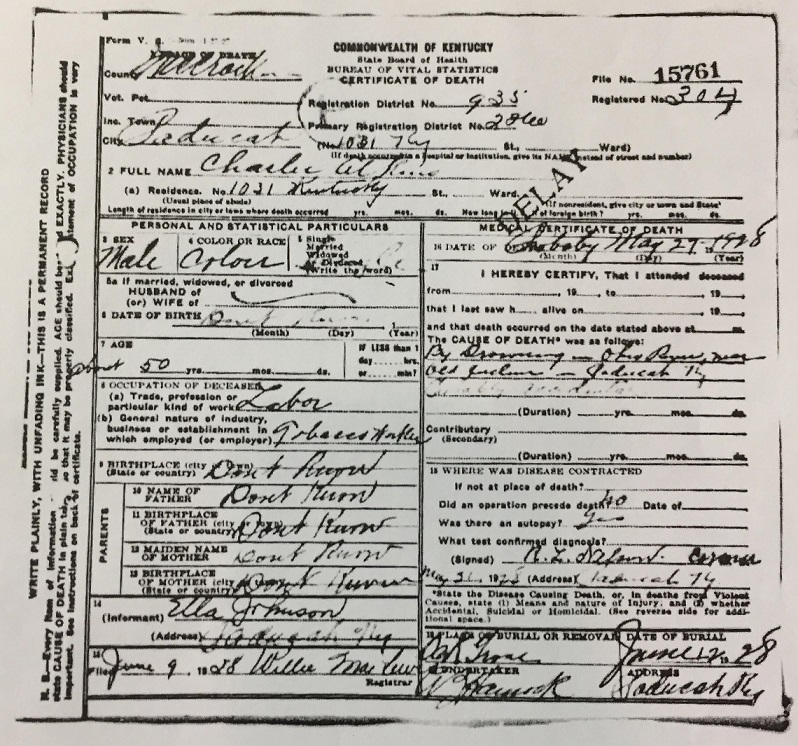 Form V. S.
COMMONWEALTH OF KENTUCKY
State Board of Health
BUREAU OF VITAL STATISTICS
CERTIFICATE OF DEATH
PLACE OF DEATH
County
File No. 15761
Registered No. 304
Vot. Pct.
Registration District No. 935
Inc. Town
Primary Registration District No.
City Paducah (No. 1031 Ky St., Ward)
(If death occurred in a hospital or institution, give its NAME instead of street and number)
2 FULL NAME Charley
(a) Residence. No. 1031 Kentucky St., Ward.
(Usual place of abode) (If nonresident, give city or town and State)
Length of residence in city or town where death occurred yrs. mos. ds. How long in of foreign birth? yrs. mos. ds.
DELAY
PERSONAL AND STATISTICAL PARTICULARS
3 SEX Male
4 COLOR OR RACE Color
5 Single
Married
Widowed
or Divorced
(Write the word)
5a If married, widowed, or divorced
HUSBAND of
(or) WIFE of
6 DATE OF BIRTH
(Month) (Day) (Year)
7 AGE
about 50 yrs. mos. ds.
IF LESS than 1
day hrs.
or min?
8 OCCUPATION OF DECEASED
(a) Trade, profession or
particular kind of work Labor
(b) General nature of industry,
business or establishment in
which employed (or employer) Tobacco Worker
9 BIRTHPLACE (city or town) Dont Know
(State or country)
PARENTS
10 NAME OF
FATHER Dont Know
11 BIRTHPLACE
OF FATHER (city or town) Dont Know
(State or country)
12 MAIDEN NAME
OF MOTHER Dont Know
13 BIRTHPLACE
OF MOTHER (city Dont Know
(State or country)
14
(Informant) Ella Johnson
(Address) Paducah Ky
15
Filed June 9, 1928 Willie
Registrar
MEDICAL CERTIFICATE OF DEATH
16 DATE OF DEATH Probably May 27, 1928
(Month) (Day) (Year)
17
I HEREBY CERTIFY, That I attended deceased
from , 19 , to , 19 ,
that I last saw h alive on , 19 ,
and that death occurred on the date stated above at m.
The CAUSE OF DEATH* was as follows:
By Drowning in Ohio River, near
Old in Paducah Ky
(Duration) yrs. mos. ds.
Contributory
(Secondary)
(Duration) yrs. mos. ds.
18 WHERE WAS DISEASE CONTRACTED
If not at place of death?
Did an operation precede death? No Date of
Was there an autopsy? Yes
What test confirmed diagnosis?
(Signed) Coroner
May 31, 1928 (Address) Paducah Ky
*State the Disease Causing Death, or, in deaths from Violent
Causes, state (1) Means and nature of Injury, and (2) whether
Accidental, Suicidal or Homicidal. (See reverse side for addi-
tional space.)
19 PLACE OF BURIAL OR REMOVAL DATE OF BURIAL
Oak Grove June 12 1928
20 UNDERTAKER ADDRESS
Paducah Ky
WRITE PLAINLY, WITH UNFADING INK—THIS IS A PERMANENT RECORD
N. B.—Every item of information should be carefully supplied. AGE should be EXACTLY. PHYSICIANS should
state CAUSE OF DEATH in plain so that it may be properly classified. statement of OCCUPATION is very
important. See instructions on back of certificate.